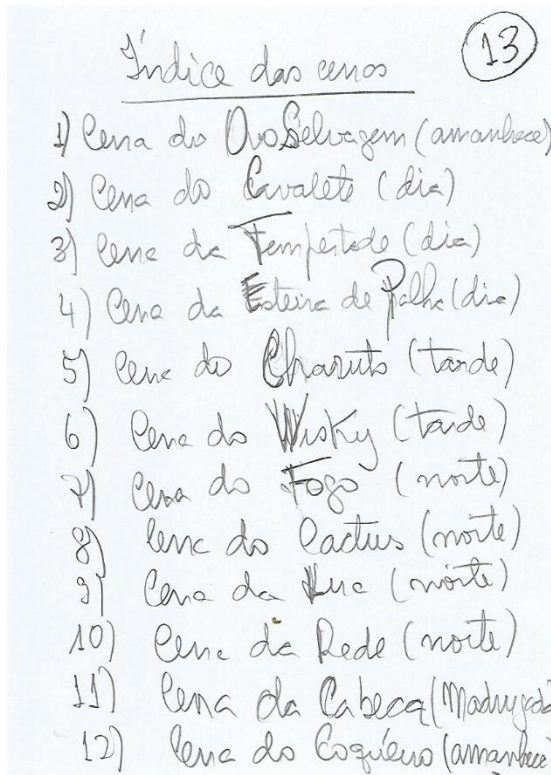 Índice das cenas
13
1) Cena do Ovo Selvagem (amanhece)
2) Cena do Cavalete (dia)
3) Cena da Tempestade (dia)
4) Cena da Esteira de Palha (dia)
5) Cena do Charuto (tarde)
6) Cena do Wisky (tarde)
7) Cena do Fogo (noite)
8) Cena do Cactus (noite)
9) Cena da (noite)
10) Cena da Rede (noite)
11) Cena da Cabeça (Madrugada
12) Cena do Coqueiro (amanhece